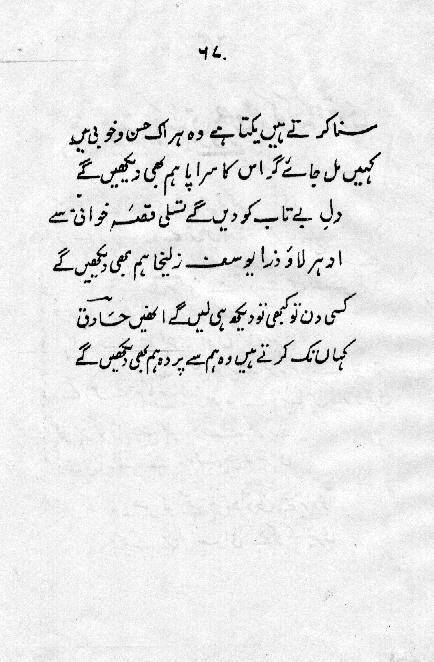 ۶۷.
سنا کرتے ہیں یکتا ہے وہ ہر اک حسن و خوبی میں
کہیں مل جائے گر اس کا سراپا ہم بھی دیکھیں گے
دلِ بے تاب کو دیں گے تسلی قصۂ خوانی سے
ادہر لاؤ ذرا یوسف زلیخا ہم بھی دیکھیں گے
کسی دن تو کبھی تو دیکھ ہی لیں گے انھیں حاذق
کہاں تک کرتے ہیں وہ ہم سے پردہ ہم بھی دیکھیں گے